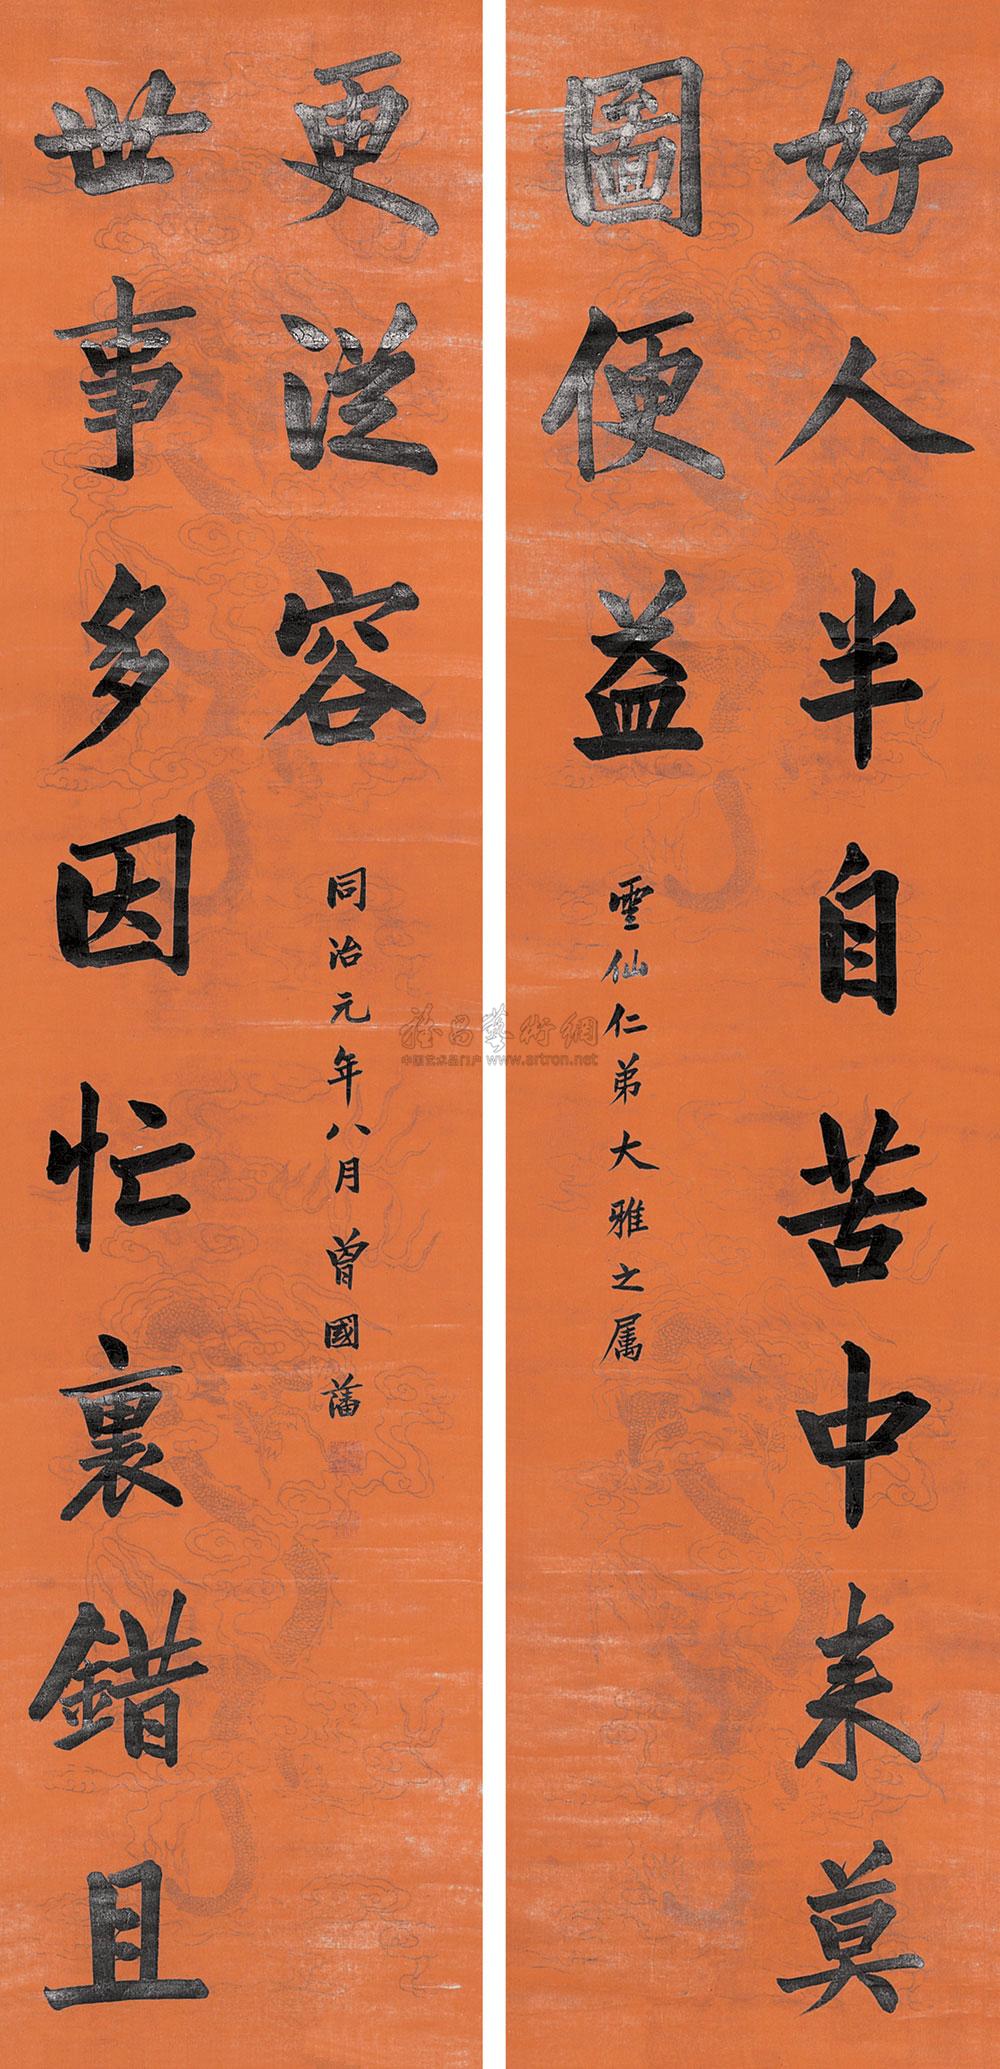 好人半自苦中来莫
圖便益
雲仙仁弟大雅之属
世事多因忙裏錯且
更從容
同治元年八月曾國藩
中国艺术品门户 www.artron.net